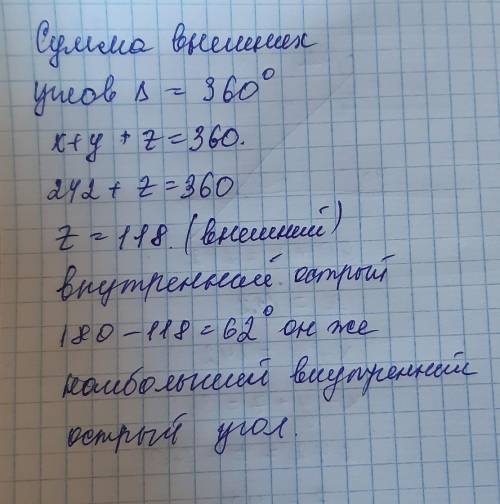 Сумма внешних
углов Δ = 360°
x+y + z=360.
242 + z=360
z=118. (внешний)
внутренний острый
180-118=62° он же
наибольший внутренний
острый угол.